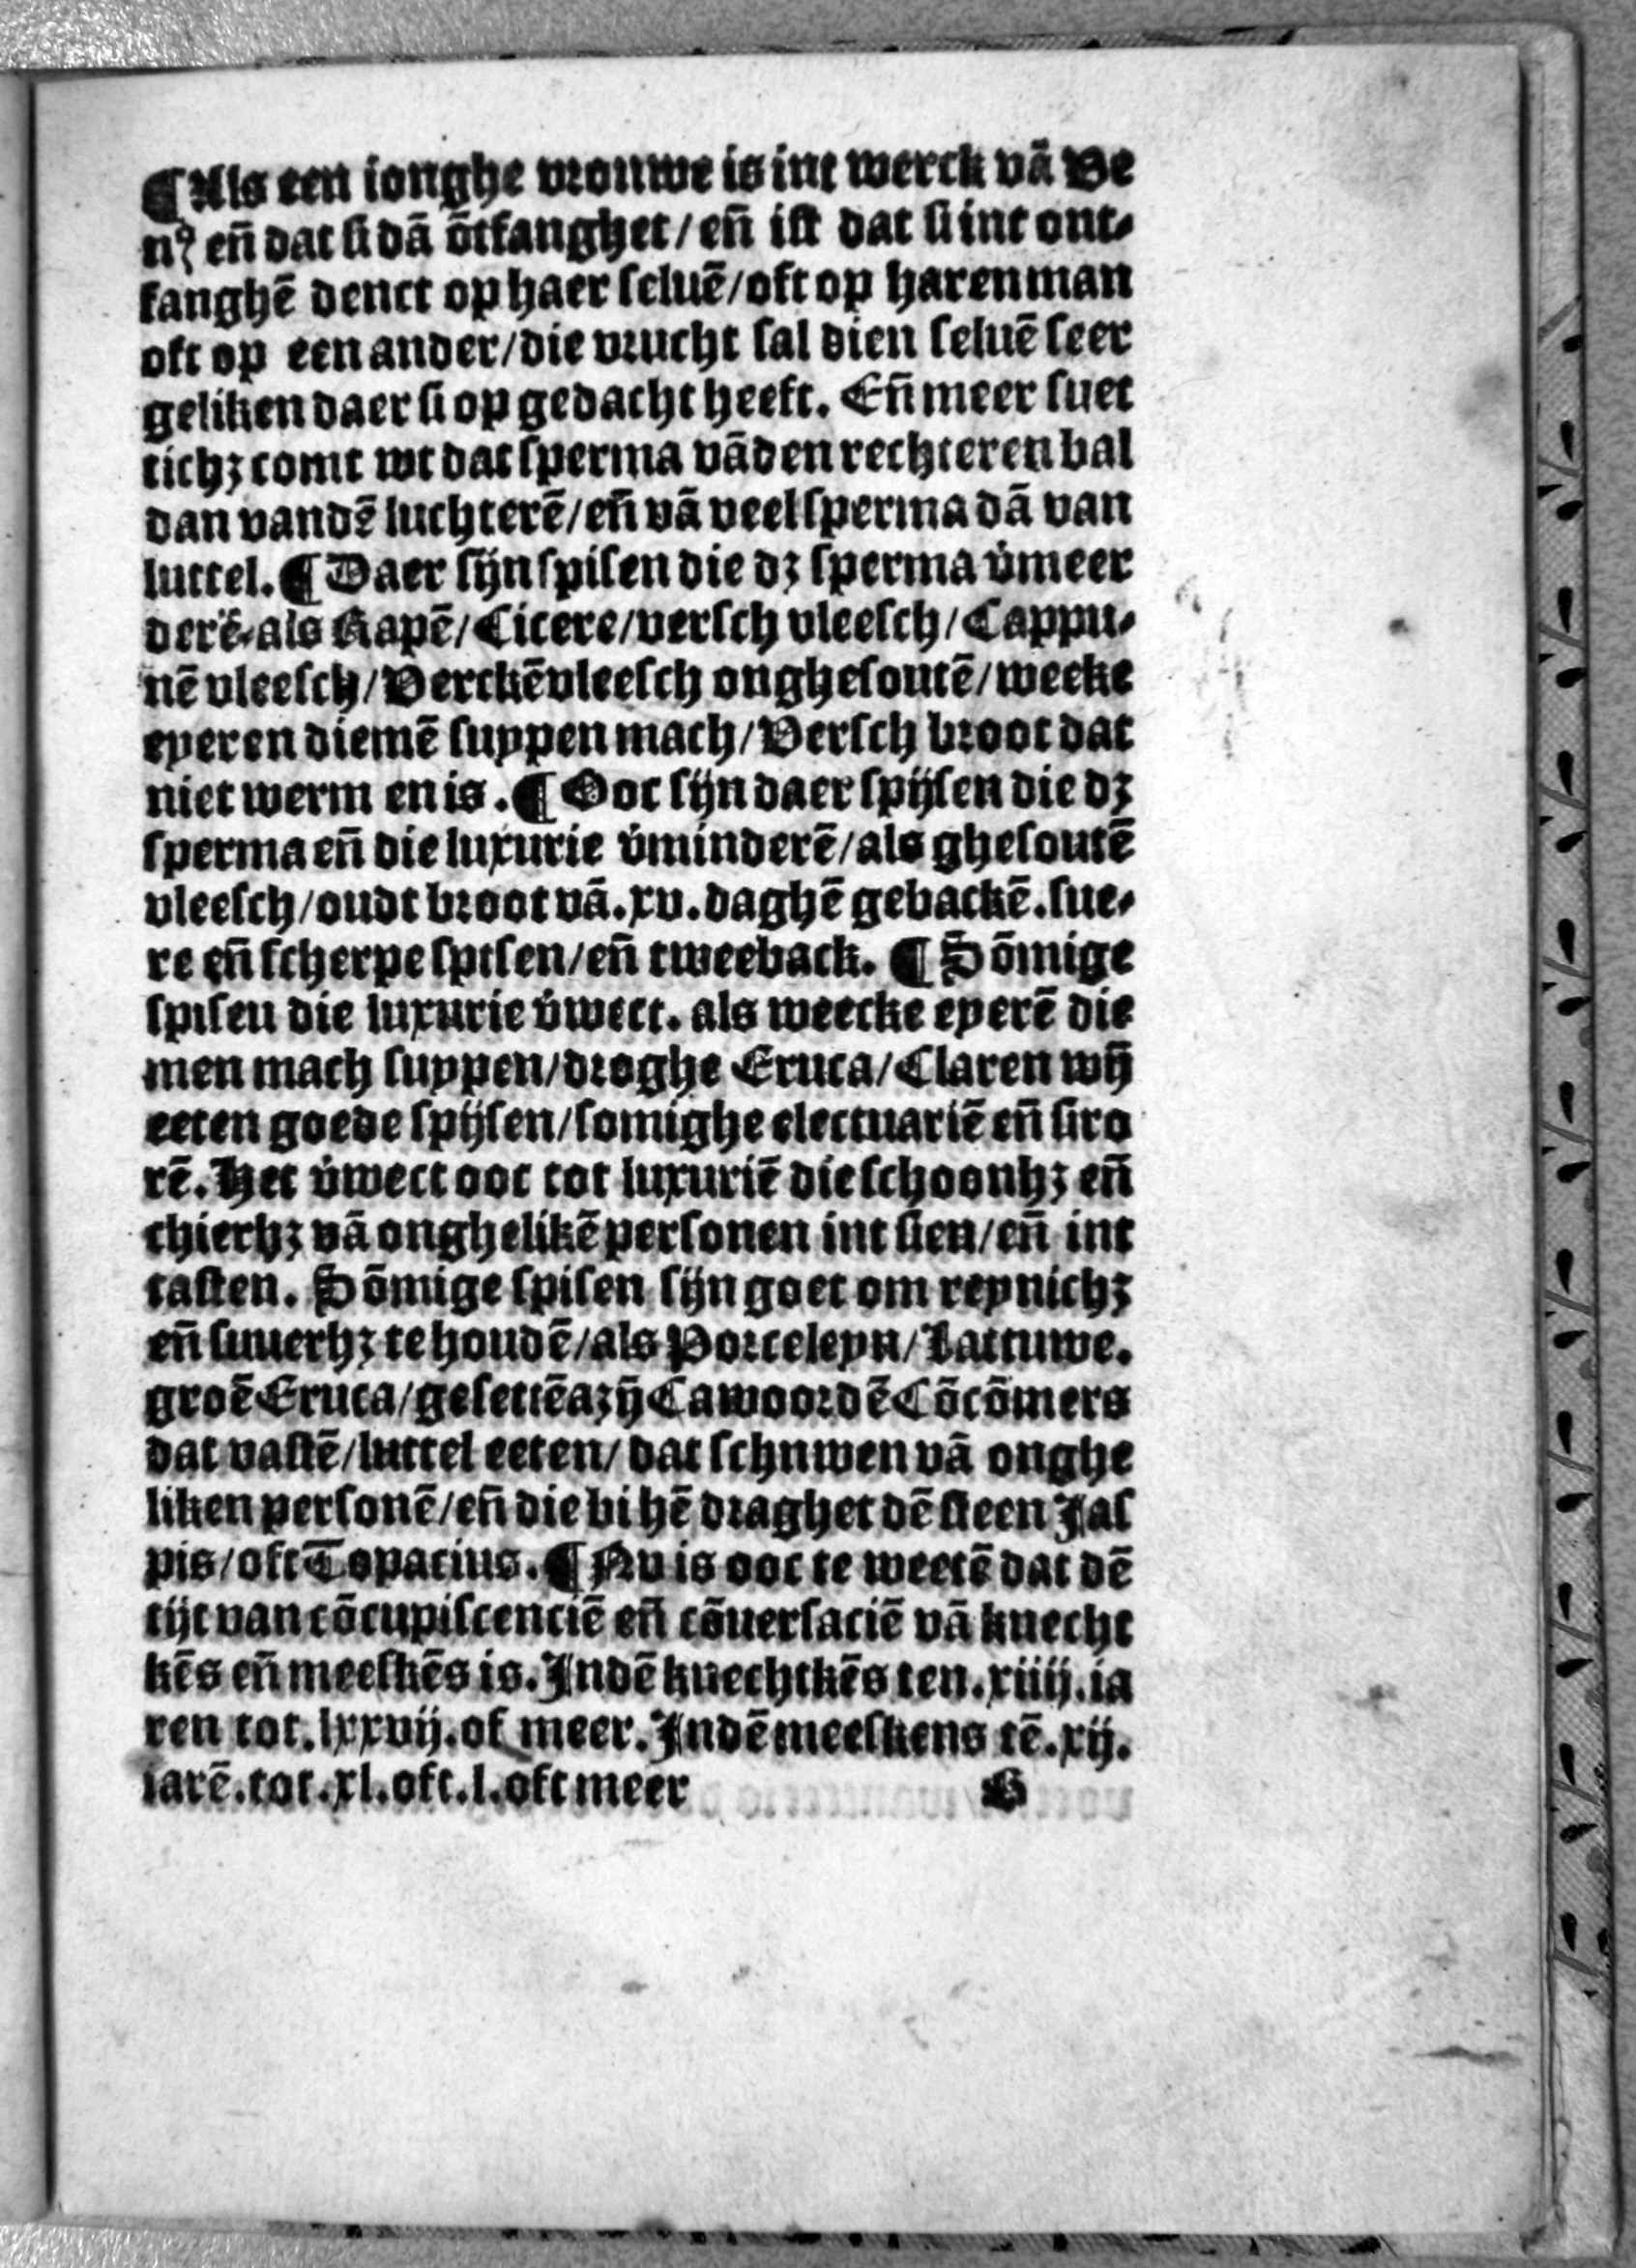 ¶Als een ionghe vrouwe is int werck vā Ve
nꝰ eñ dat si dā ōtfanghet/eñ ist dat si int ont⸗
fanghē denct op haer seluē/oft op haren man
oft op een ander/die vrucht sal dien seluē seer
geliken daer si op gedacht heeft. Eñ meer suet
tichꝫ comt wt dat sperma vāden rechteren bal
dan vandē luchterē/eñ vā veel sperma dā van
luttel.¶Daer sijn spisen die dꝫ sperma v̄meer
derē⸗als Rapē/Cicere/versch vleesch/Cappu⸗
nē vleesch/Verckēvleesch onghesoutē/weeke
eyeren diemē suppen mach/Versch broot dat
niet werm en is.¶Ooc sijn daer spijsen die dꝫ
sperma eñ die luxurie v̄minderē/als ghesoutē
vleesch/oudt broot vā.xv.daghē gebackē.sue⸗
re eñ scherpe spisen/eñ tweeback. ¶Sōmige
spisen die luxurie v̄wect. als weecke eyerē die
men mach suppen/droghe Eruca/Claren wij̄
eeten goede spijsen/somighe electuariē eñ siro
rē. Het v̄wect ooc tot luxuriē die schoonhꝫ eñ
chierhꝫ vā onghelikē personen int sien/eñ int
tasten. Sōmige spisen sijn goet om reynichꝫ
eñ suuerhꝫ te houdē/als Porceleyn/Lattuwe.
groē Eruca/gesettē azij̄ Cawoordē Cōcōmers
dat vastē/luttel eeten/dat schuwen vā onghe
liken personē/eñ die bi hē draghet dē steen Jas
pis/oft Topacius.¶Nu is ooc te weetē dat dē
tijt van cōcupiscenciē eñ cōuersaciē vā knecht
kēs eñ meeskēs is. Jndē knechtkēs ten.xiiij.ia
ren tot.lxxvij.of meer. Jndē meeskens tē.xij.
iarē.tot.xl.oft.l.oft meer